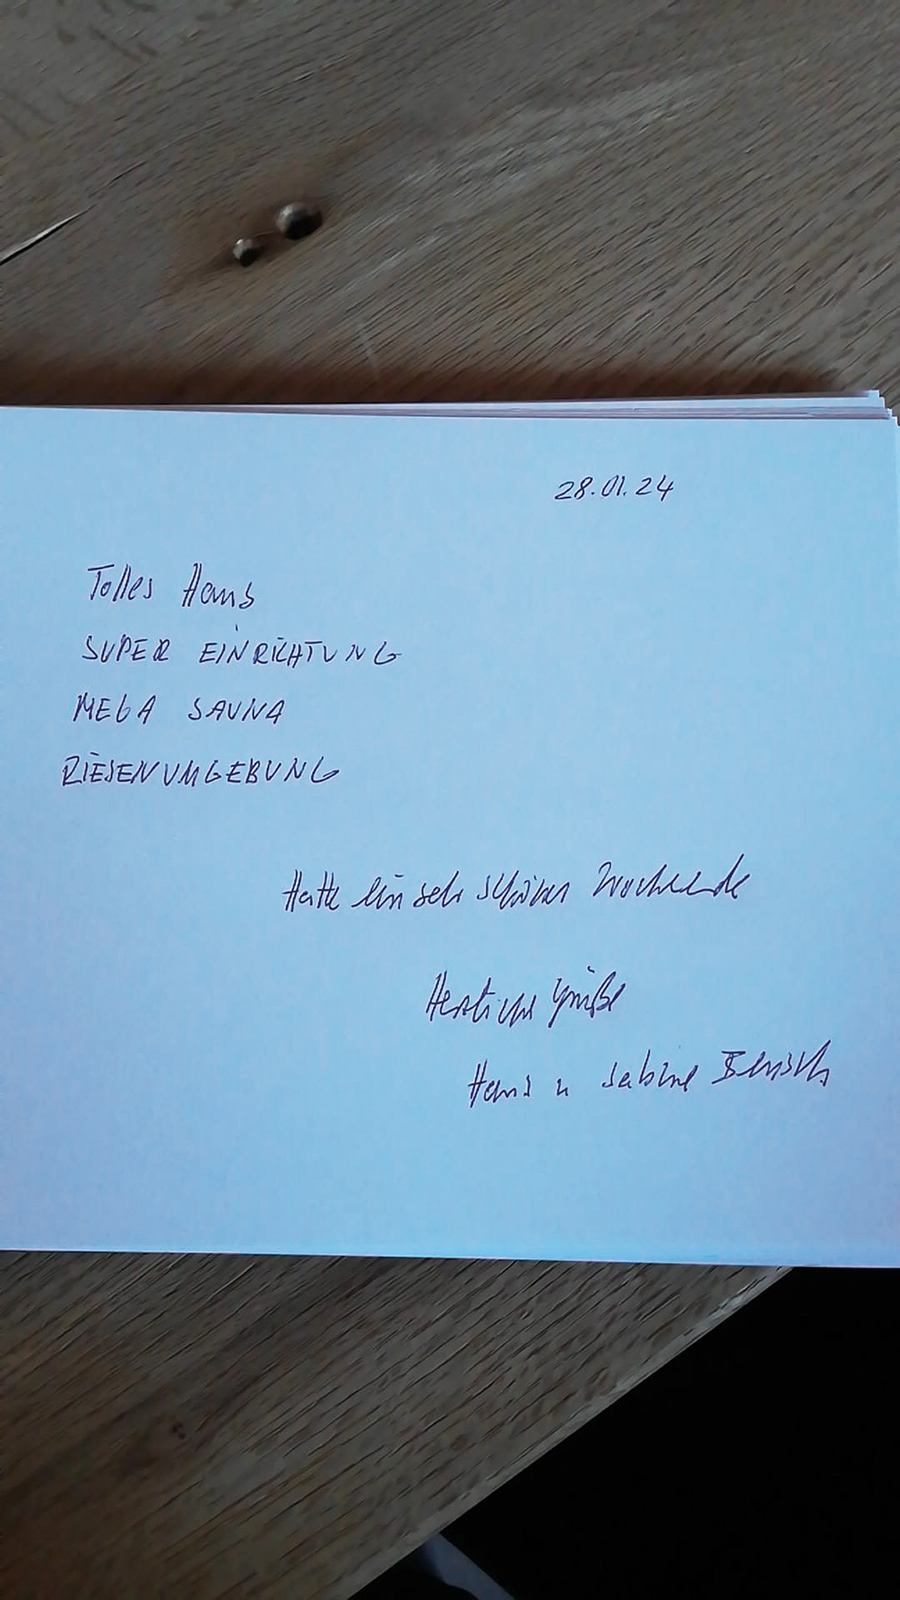 28.01.24
Tolles Haus
SUPER EINRICHTUNG
MEGA SAUNA
RIESENUMGEBUNG
Hatte ein sehr schönes Wochenende
Herzliche Grüße
Hans u Sabine